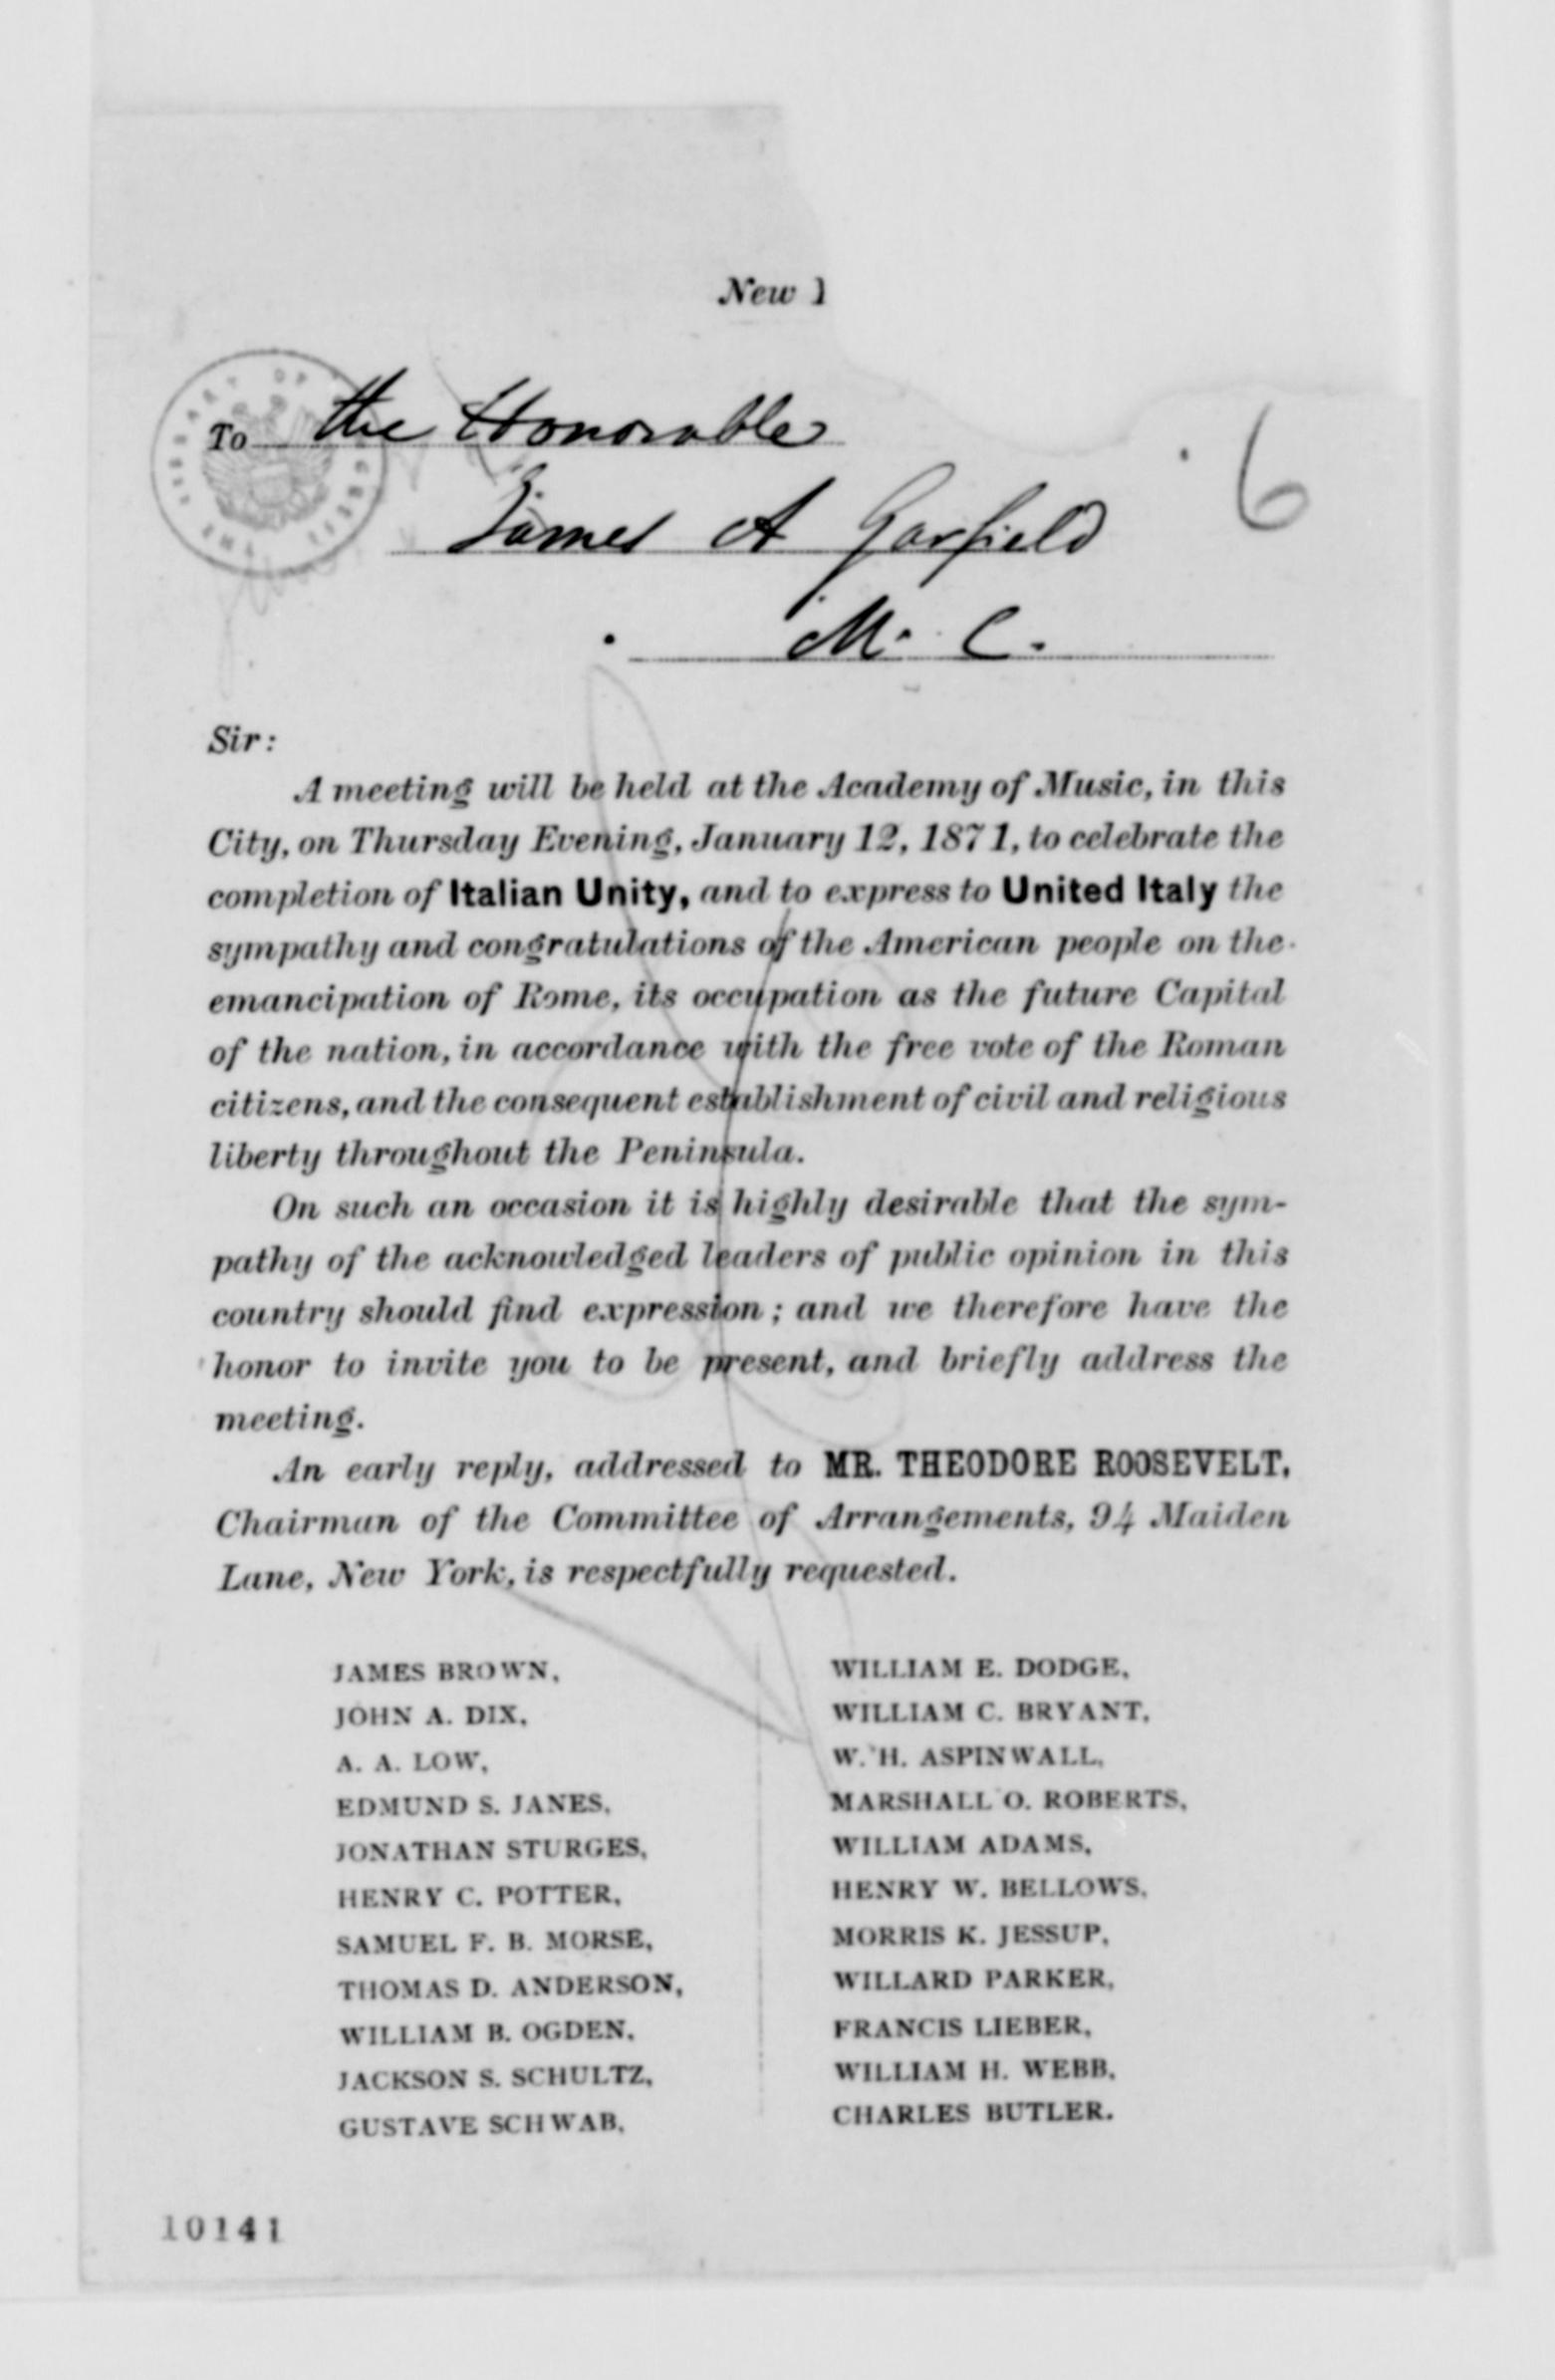 New
To the Honorable
James A Garfield
M. C.
6
Sir:
A meeting will be held at the Academy of Music, in this
City, on Thursday Evening, January 12, 1871, to celebrate the
completion of Italian Unity, and to express to United Italy the
sympathy and congratulations of the American people on the
emancipation of Rome, its occupation as the future Capital
of the nation, in accordance with the free vote of the Roman
citizens, and the consequent establishment of civil and religious
liberty throughout the Peninsula.
On such an occasion it is highly desirable that the sym-
pathy of the acknowledged leaders of public opinion in this
country should find expression; and we therefore have the
honor to invite you to be present, and briefly address the
meeting.
An early reply, addressed to MR. THEODORE ROOSEVELT,
Chairman of the Committee of Arrangements, 94 Maiden
Lane, New York, is respectfully requested.
JAMES BROWN,
JOHN A. DIX,
A. A. LOW,
EDMUND S. JANES,
JONATHAN STURGES,
HENRY C. POTTER,
SAMUEL F. B. MORSE,
THOMAS D. ANDERSON,
WILLIAM B. OGDEN,
JACKSON S. SCHULTZ,
GUSTAVE SCHWAB,
WILLIAM E. DODGE,
WILLIAM C. BRYANT,
W. H. ASPINWALL,
MARSHALL O. ROBERTS,
WILLIAM ADAMS,
HENRY W. BELLOWS,
MORRIS K. JESSUP,
WILLARD PARKER,
FRANCIS LIEBER,
WILLIAM H. WEBB,
CHARLES BUTLER.
10141